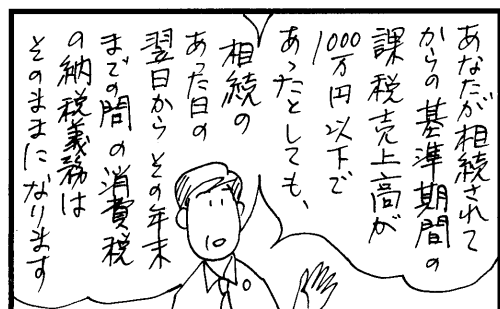 あなたが相続されて
からの基準期間の
課税売上高が
1000万円以下で
あったとしても、
相続の
あった日の
翌日からその年末
までの間の消費税
の納税義務は
そのままになります